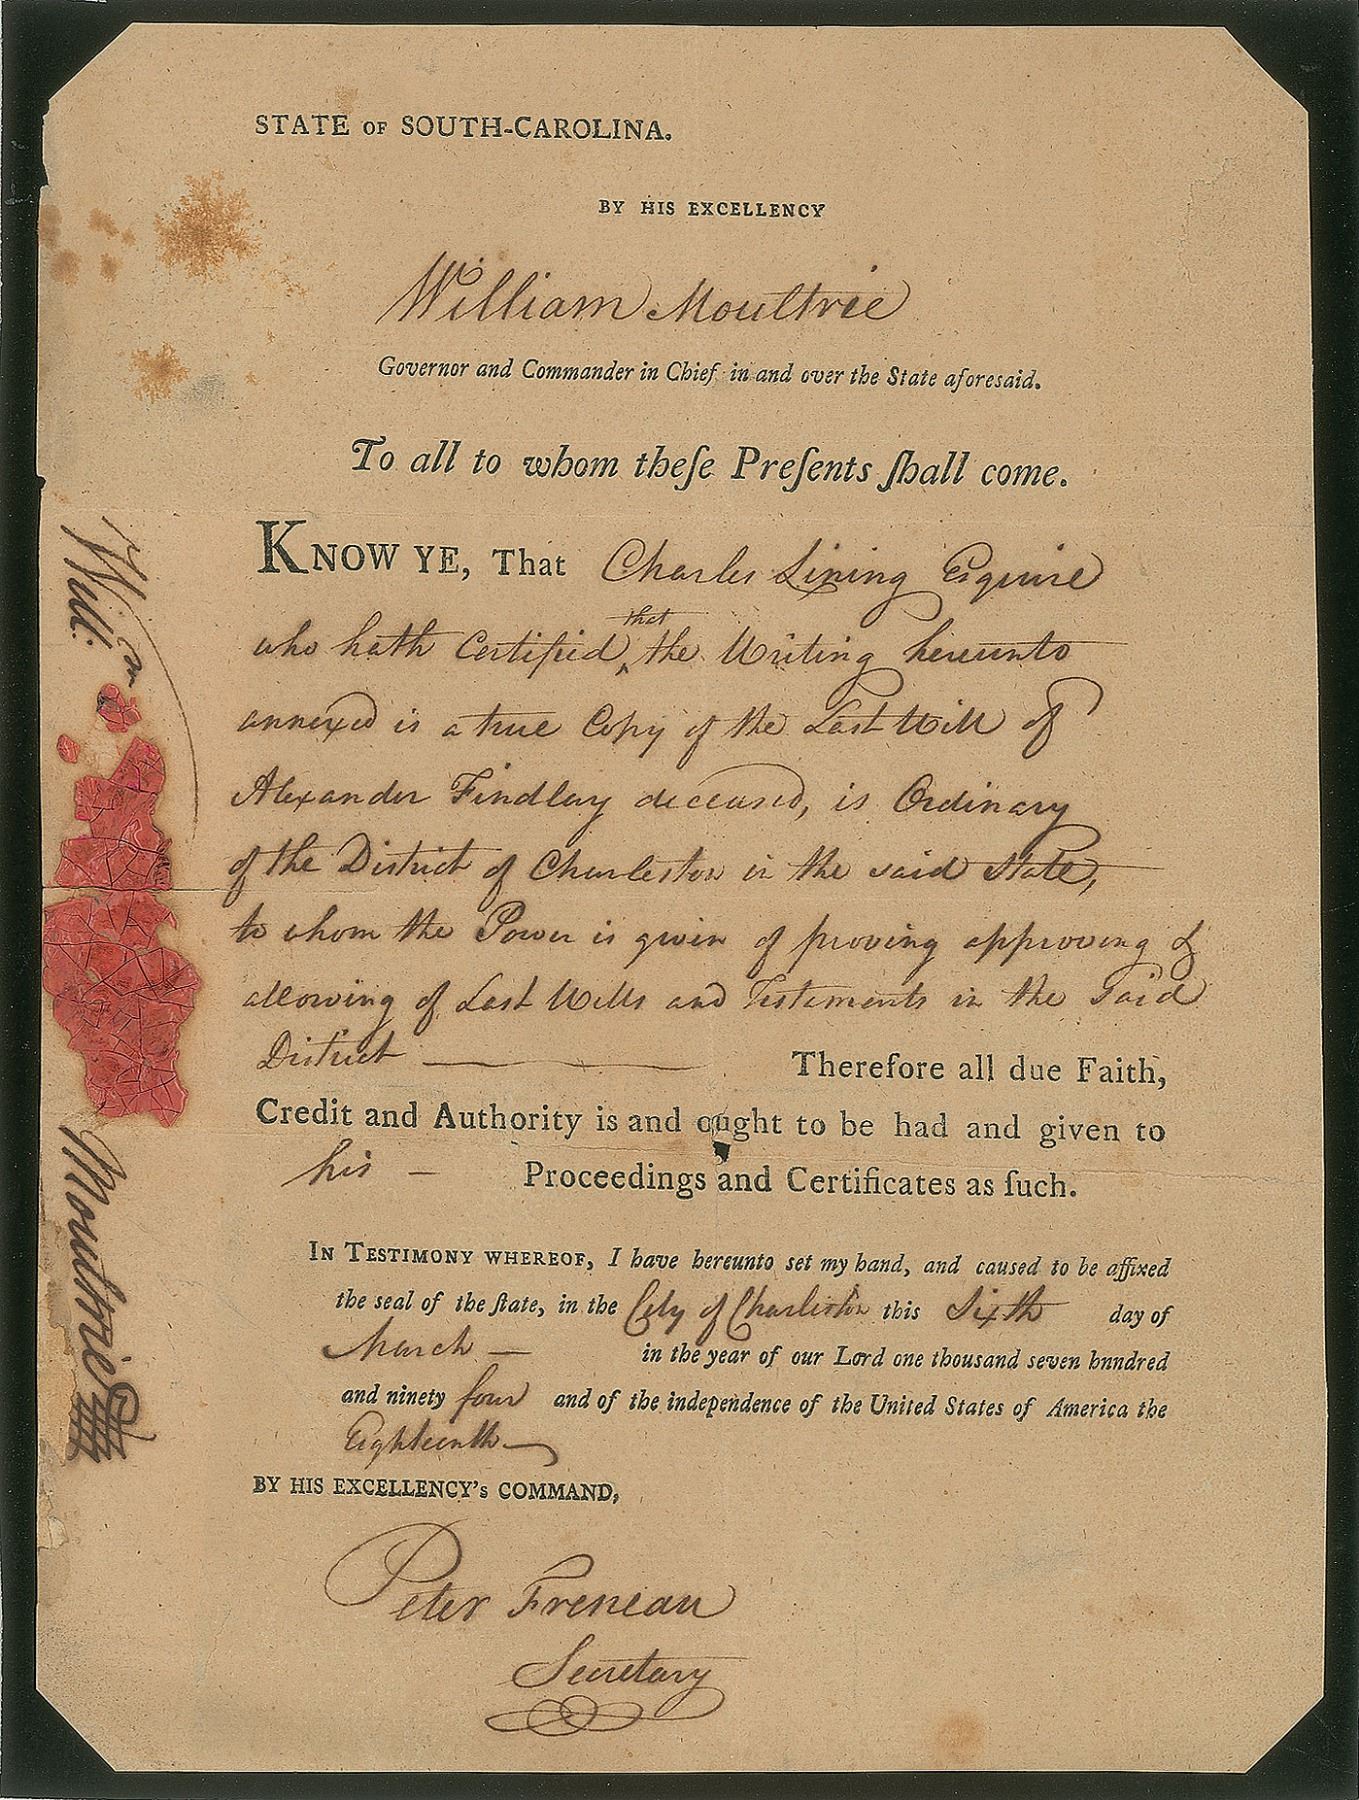 STATE OF SOUTH-CAROLINA.
BY HIS EXCELLENCY
William Moultrie
Governor and Commander in Chief in and over the State aforesaid.
To all to whom theſe Preſents ſhall come.
KNOW YE, That Charles Lining Esquire
that
who hath Certified ‸ the Writing hereunto
annexed is a true Copy of the Last Will of
Alexander Findlay deceased, is Ordinary
of the District of Charleston in the said State,
to whom the Power is given of proving approving &
allowing of Last Wills and Testaments in the Said
District — Therefore all due Faith,
Credit and Authority is and ought to be had and given to
his — Proceedings and Certificates as ſuch.
IN TESTIMONY WHEREOF, I have hereunto set my hand, and caused to be affixed
the seal of the ſtate, in the City of Charleston this Sixth day of
March — in the year of our Lord one thousand seven hnndred
and ninety four and of the independence of the United States of America the
Eighteenth —
BY HIS EXCELLENCY's COMMAND,
Peter Freneau
Secretary
Will.
Moultrie